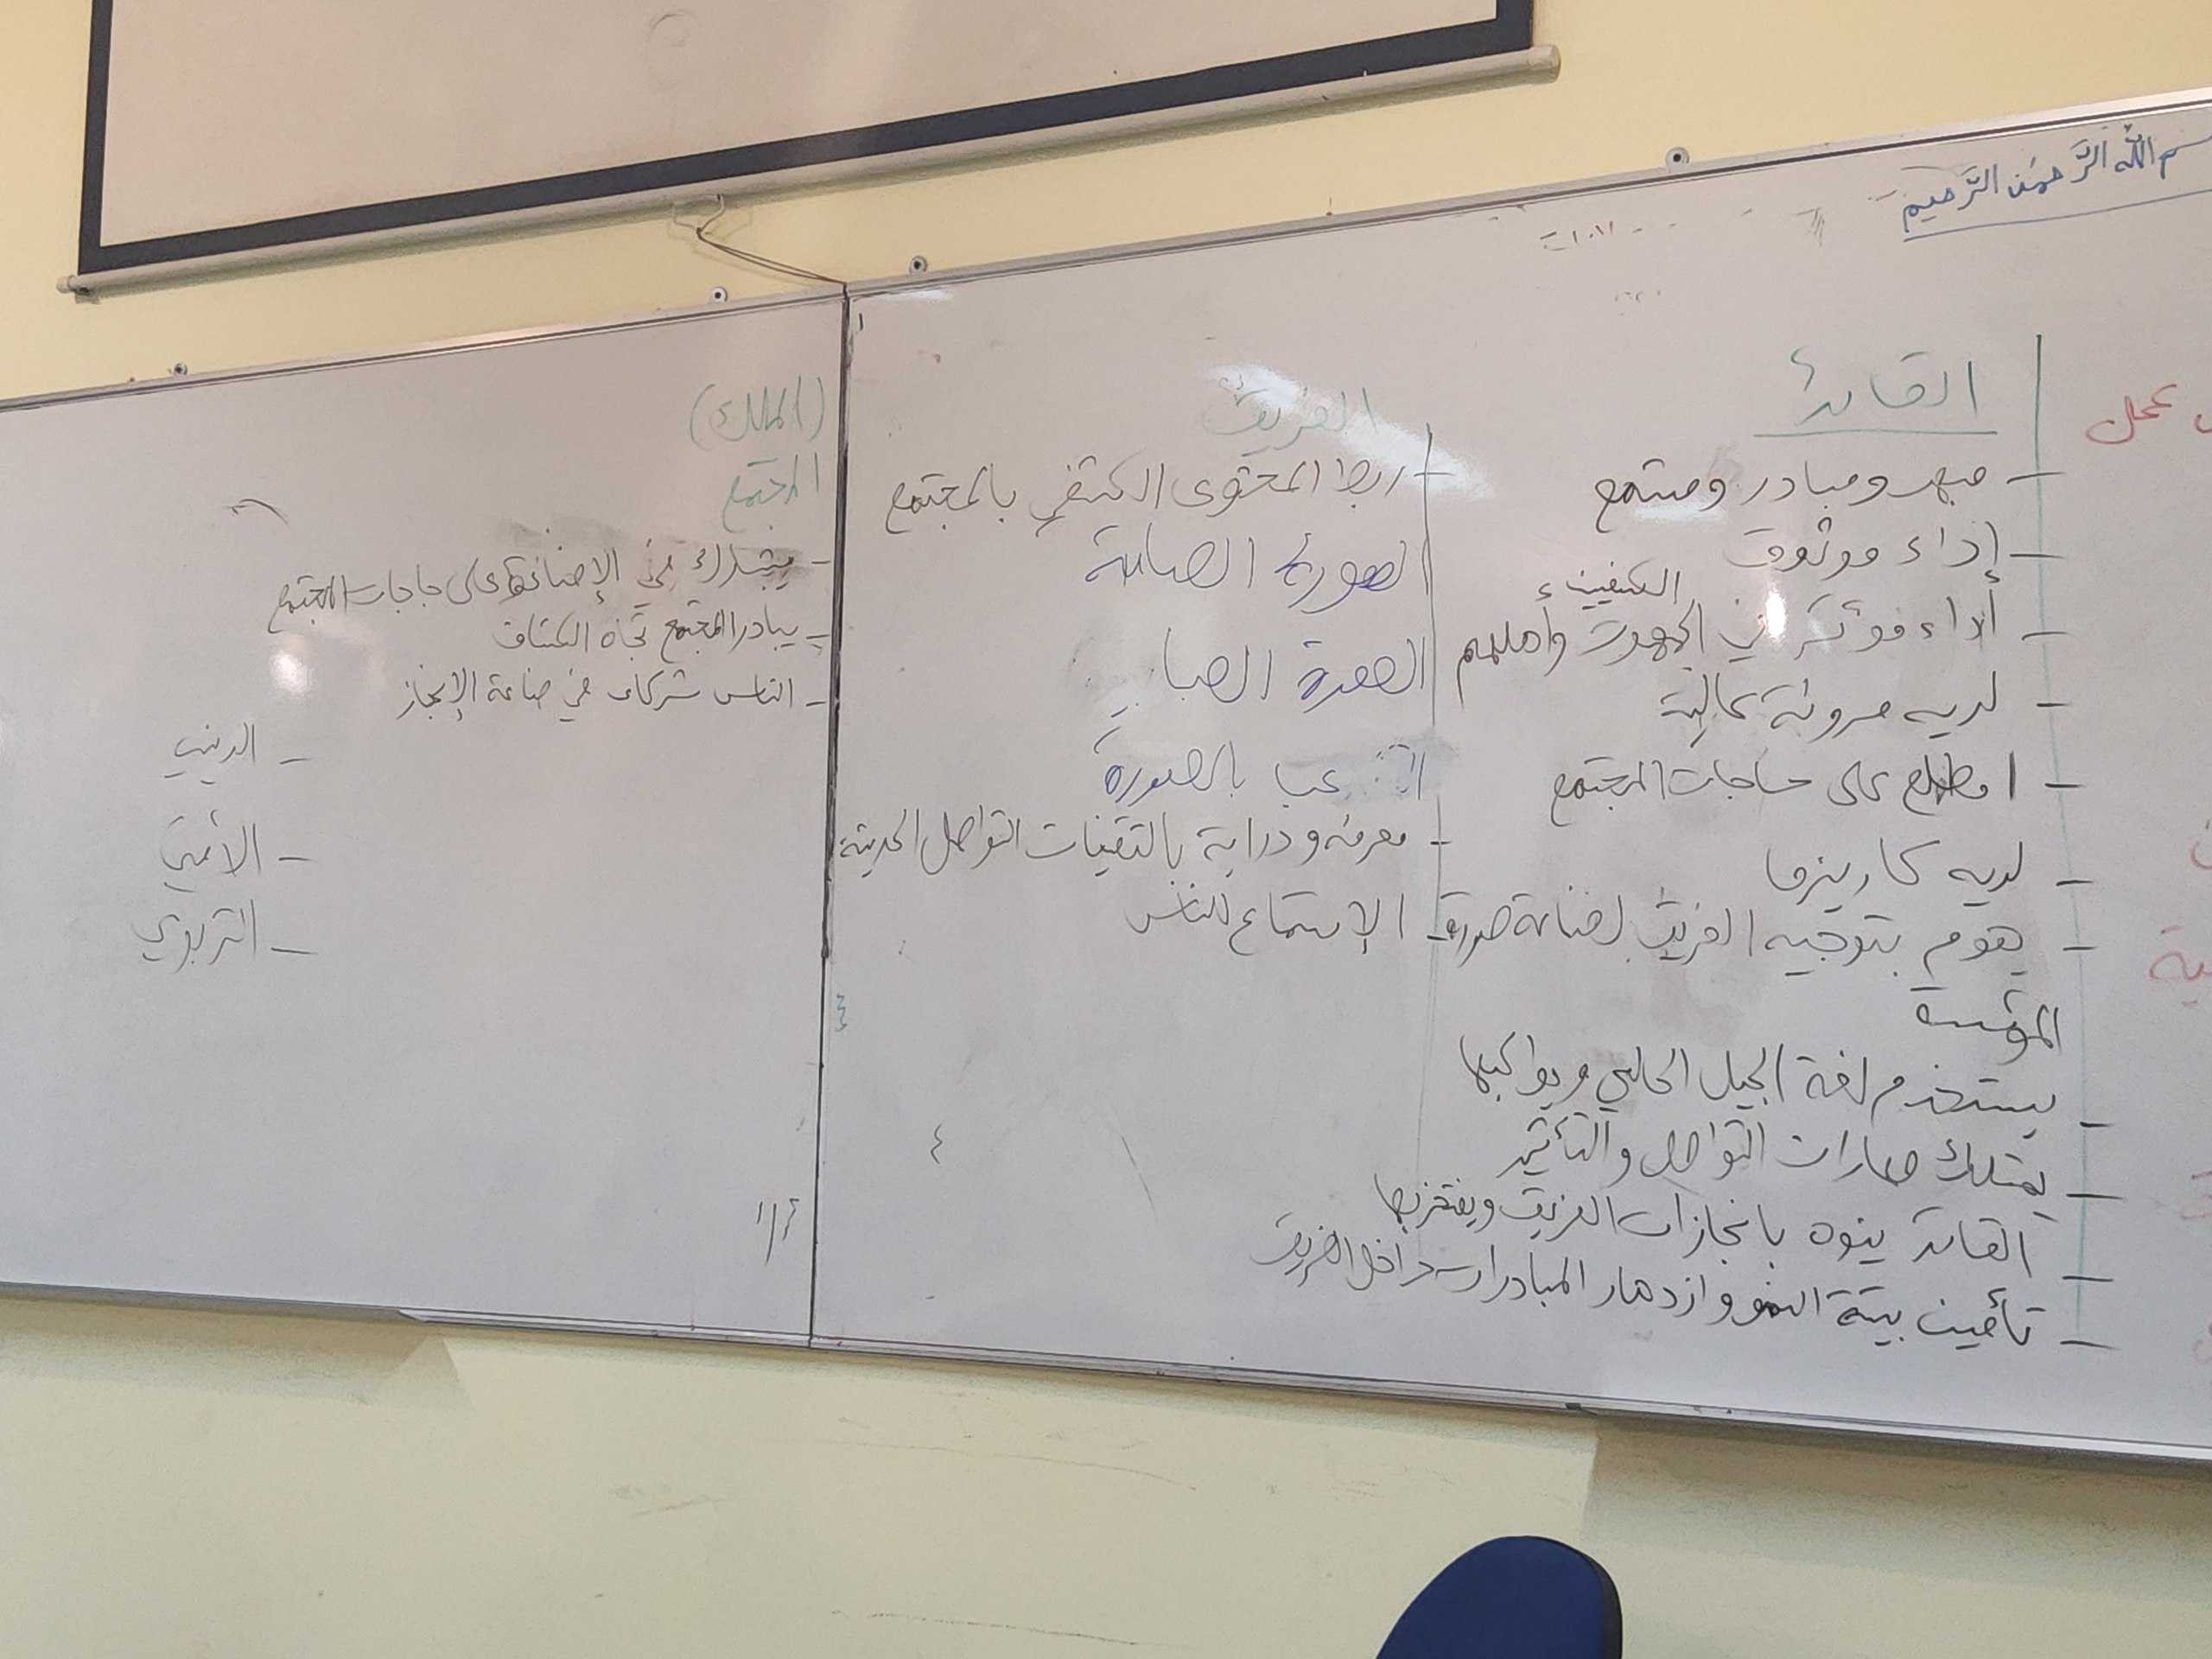 بسم الله الرَّحمٰن الرَّحيم
عمل
القائد
- مبهر ومبادر ومستمع
- إداء موثوق
- أداء مؤثر في الجمهور وأهليهم
الكشفيين
- لديه مرونة عالية
- مطلع على حاجات المجتمع
- لديه كاريزما
- يقوم بتوجيه الفريق لصناعة صورة
المؤسسة
- يستخدم لغة الجيل الحالي ويواكبها
- يمتلك مهارات التواصل والتأثير
- القائد ينوه بانجازات الفريق ويفتخر بها
- تأمين بيئة النمو وازدهار المبادرات داخل الفريق
الفريق
- ربط المحتوى الكشفي بالمجتمع
الصورة الصامتة
الصورة
بالصورة
- معرفة ودراية بالتقنيات التواصل الحديثة
- الإستماع للناس
(الملك)
المجتمع
- يشارك في الإضافة على حاجات المجتمع
- يبادر المجتمع تجاه الكشاف
- الناس شركاء في صناعة الإنجاز
- الديني
- الأمني
- التربوي
٤